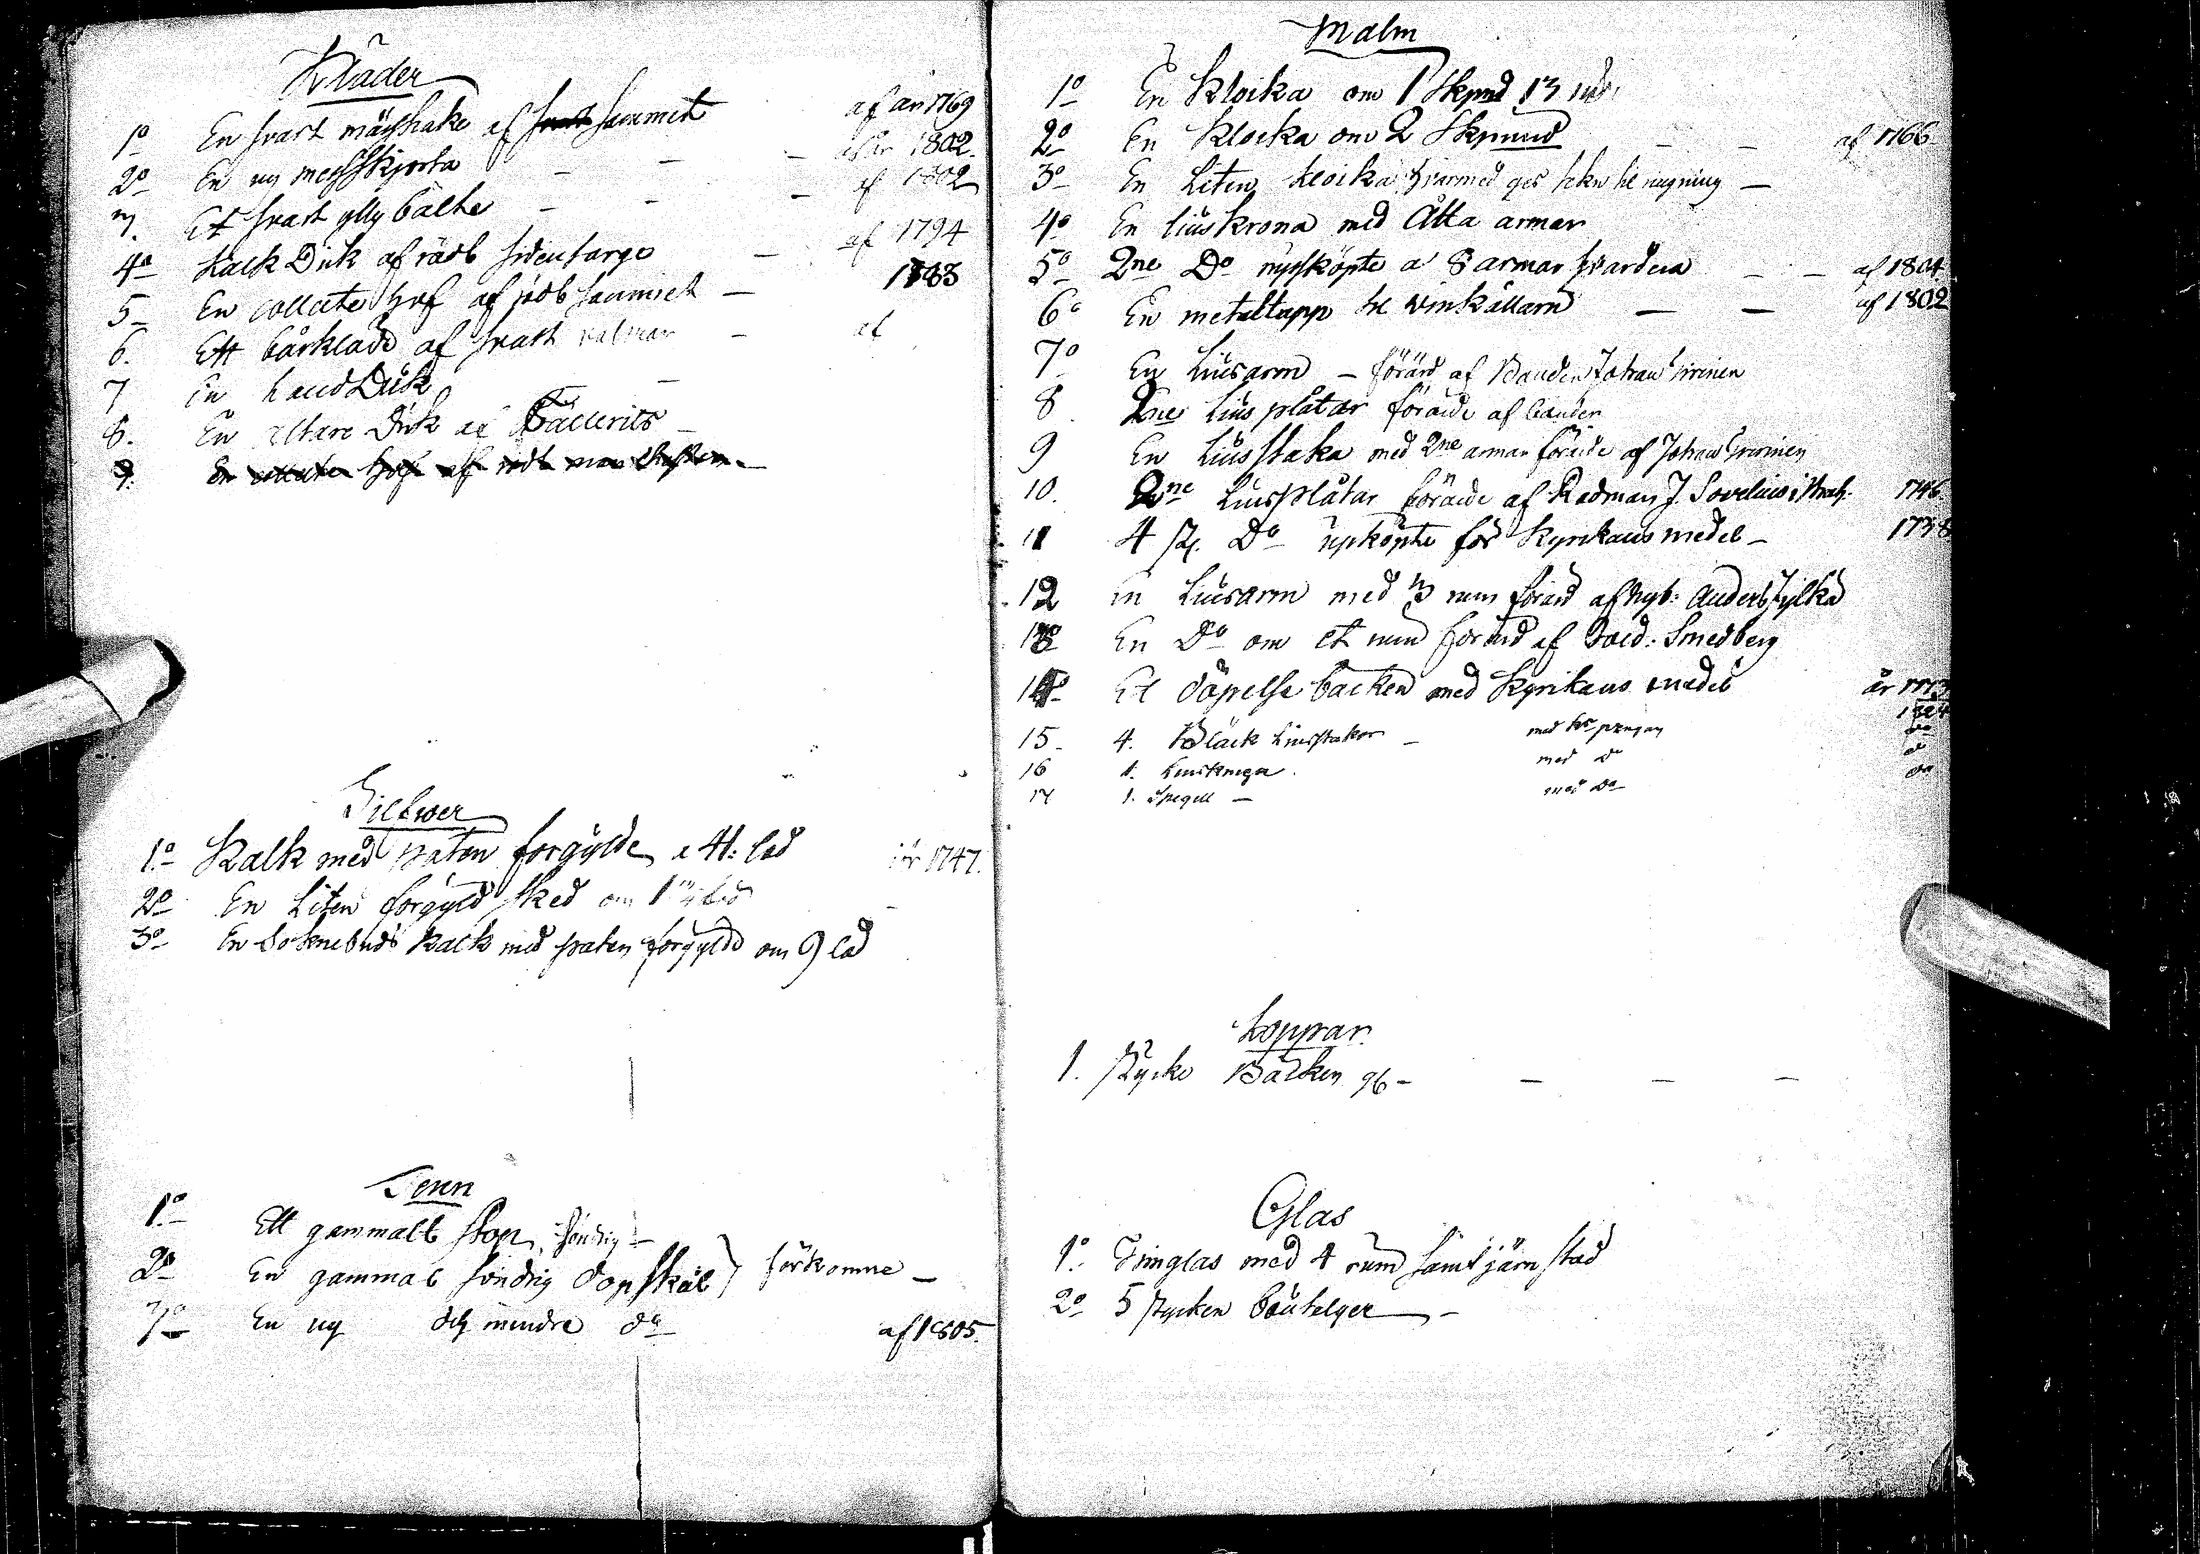 Kläder
1o En svart mässhake af sammet af år 1769
2o En ny messskjorta - - - af år 1802.
3. Et svart gllg bälte - - - af 1802
4o Kalk Duk af rödt sidentarge - af 1794
5 En collecte håf af rödt sammet - 1783
6. Ett bårkläde af svart valmar - af
7 En handDuk -
8. En altare Duk af Fällerits -
9. En håf af rödt
Silfwer
1o Kalk med paten forgylde a 41: lod år 1747.
2o En Liten forgyld sked om 1 lod -
3o En Soknebuds kalk med paten forgyldd om 9 lod
Tenn
1o Ett gammalt stop, söndrig -
2o En gammal söndrig dopskål } förkomne -
3o En ny och mindre do af 1805.
Malm
1o En Klocka om 1 Skpnd 13
2o En Klocka om 2 Skpund - - af 1766
3o En Liten klocka hvarmed ges tekn til ringning -
4o En liuskrona med Åtta armar
5o 2ne Do upköpte a 8 armar hvardera - - af 1804
6o En metaltapp til Winkällarn - - af 1802
7o En Liusarm - förärd af Bonden Johan
8. 2ne Lius plåtar förärde af bönder
9 En Liusstaka med 2ne armar förärde af Johan
10. 2ne Liusplåtar förärde af Rådman J. Sovelius i Brah. 1746
11 4 st. Do upköpte för Kyrkans medel - 1738
12 En Liusarm med 3 rum förärd af nyb: Anders Jylkä
13o En Do om et rum förärd af Sold: Smedberg
14o Et döpelse bäcken med Kyrkans medel år 1773
15 4. Bläck Liusstakar - med 1824
16 1. med do do
17 1. Spegell - med do do
Koppar
1. stycke Bäcken 96 - - - -
Glas
1o Timglas med 4 rum samt järn stad
2o 5 stycken boutelger -